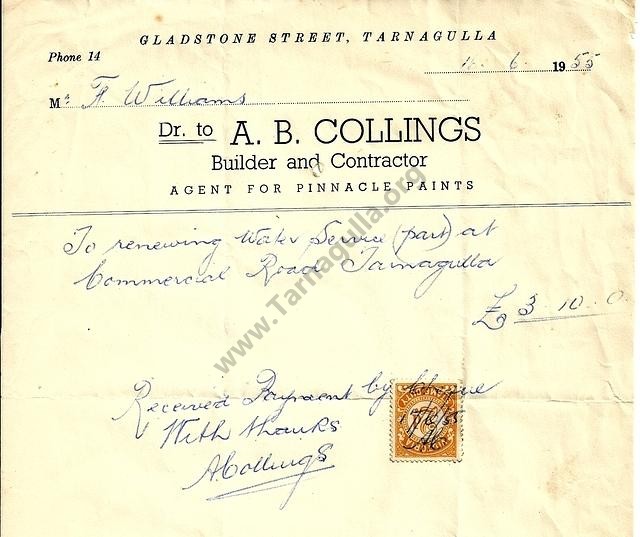 GLADSTONE STREET, TARNAGULLA
Phone 14
6. 1955
Mr. F. Williams
Dr. to A. B. COLLINGS
Builder and Contractor
AGENT FOR PINNACLE PAINTS
To renewing Water Service (part) at
Commercial Road Tarnagulla
£ 3. 10. 0
Received Payment by cheque
With thanks
A Collings
www.Tarnagulla.org